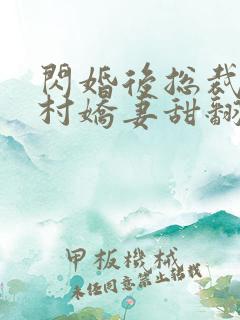 閃婚後總裁
村嬌妻甜翻
甲板機械
未經同意禁止轉載